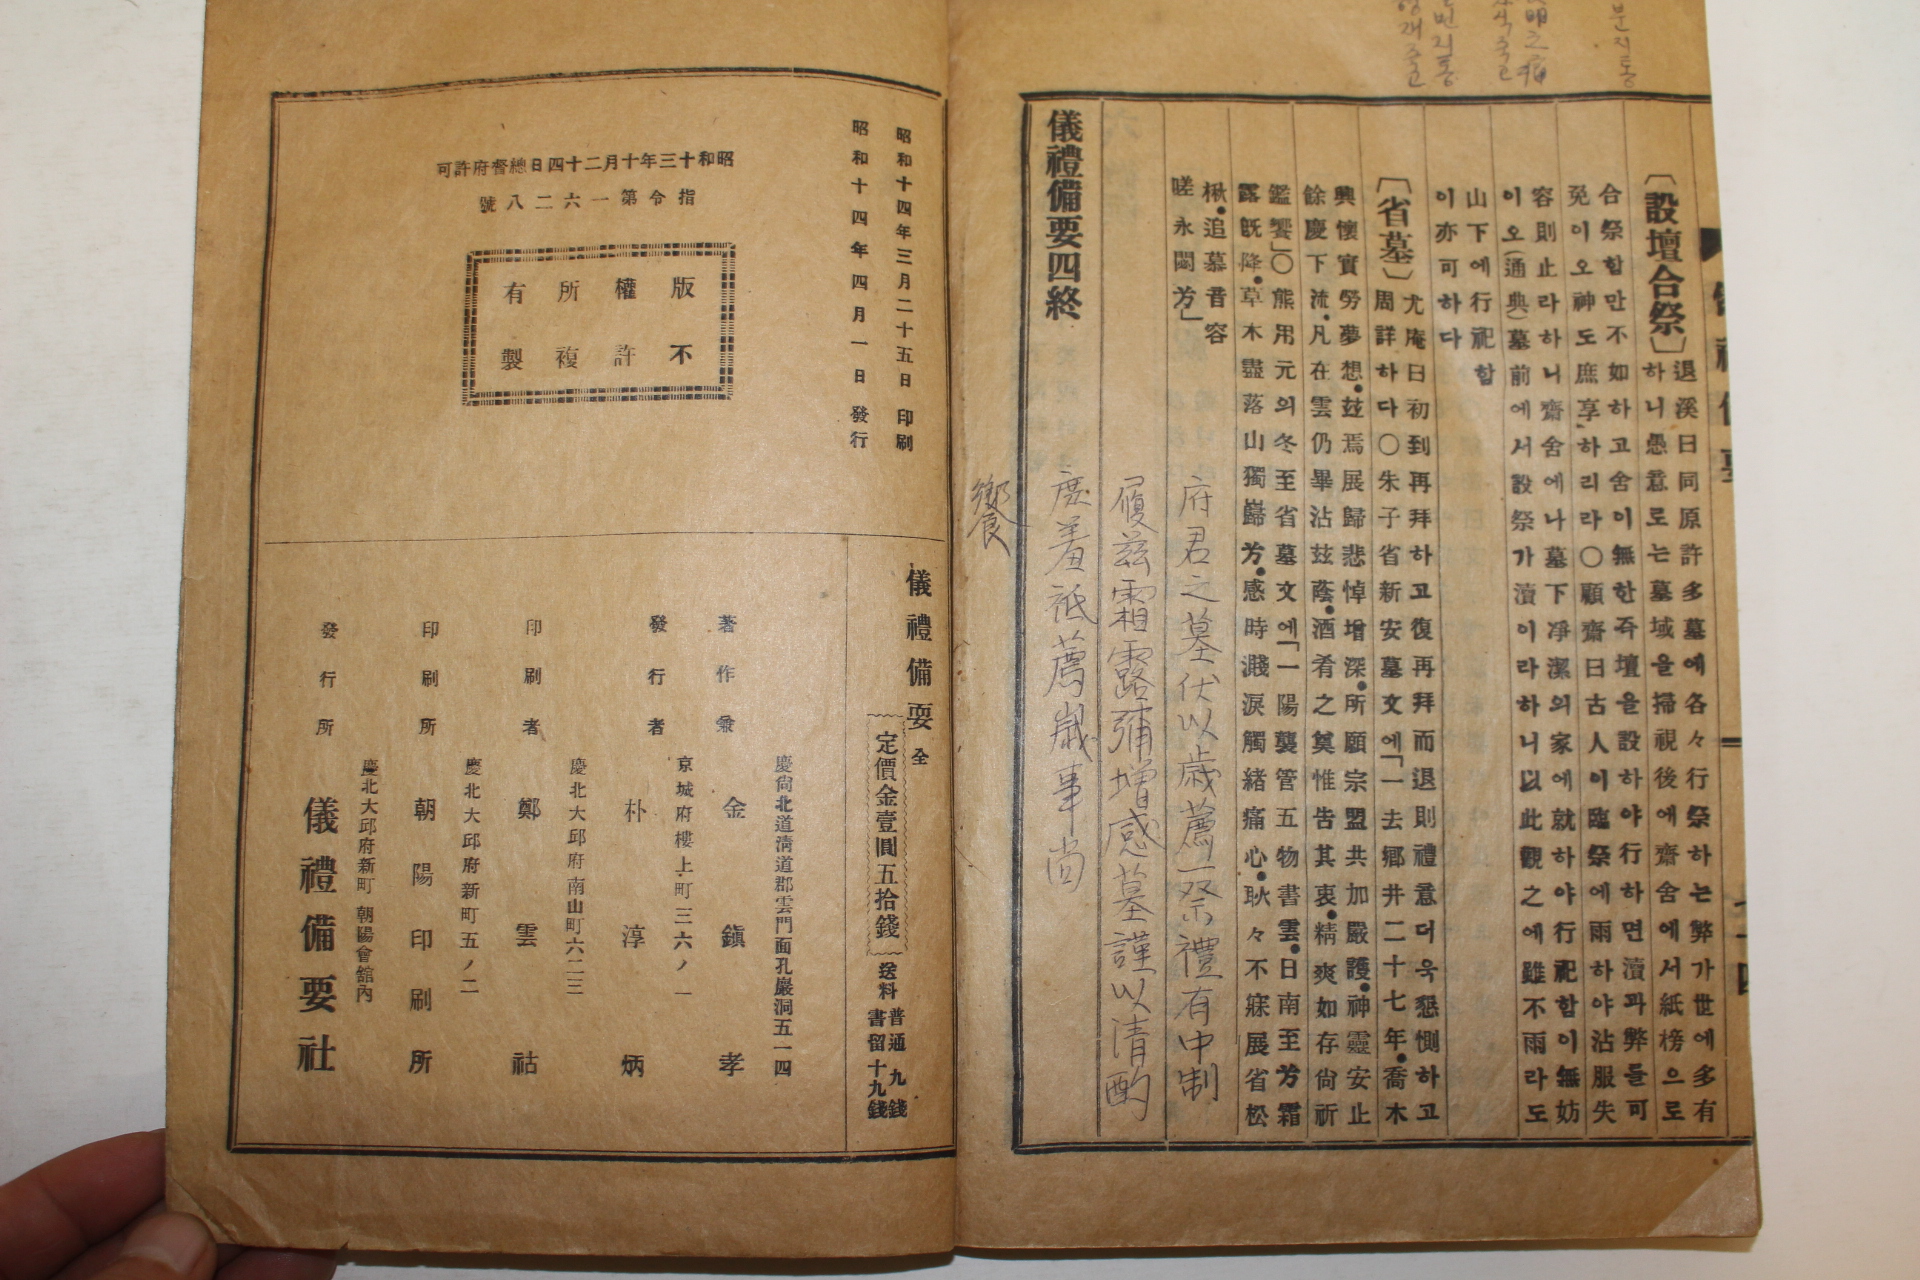 분지통
明之
번지통
儀禮備要
〔設壇合祭〕退溪曰同原許多墓에各々行祭하는弊가世에多有
하니愚意로는墓域을掃視後에齋舍에서紙榜으로
合祭함만不如하고舍이無한즉壇을設하야行하면瀆과弊들可
免이오神도庶享하리라〇顧齋曰古人이臨祭에雨하야沾服失
容則止라하니齋舍에나墓下凈潔의家에就하야行祀함이無妨
이오(通典)墓前에서設祭가瀆이라하니以此觀之에雖不雨라도
山下에行祀함
이亦可하다
〔省墓〕尤庵曰初到再拜하고復再拜而退則禮意더욱懇惻하고
周詳하다〇朱子省新安墓文에「一去鄕井二十七年•喬木
興懷實勞夢想•玆焉展歸悲悼增深•所願宗盟共加嚴護•神靈安止
餘慶下流•凡在雲仍畢沾玆蔭•酒肴之奠惟告其衷•精爽如存尙祈
鑑饗」〇熊用元의冬至省墓文에「一陽襲管五物書雲•日南至芳霜
露旣降•草木盡落山獨歸芳•感時濺淚觸緖痛心•耿々不寐展省松
楸•追慕音容
嗟永閟芳」
府君之墓伏以歲薦一祭禮有中制
履茲霜露彌增感墓謹以清酌
庶羞祗薦歲事尚
饗
儀禮備要四終
昭和十四年三月二十五日印刷
昭和十四年四月一日發行
昭和十三年十月二十四日總督府許可
指令第一六二八號
版權所有
不許複製
儀禮備要 全
定價金壹圓五拾錢
送料 普通九錢
書留十九錢
慶尙北道淸道郡雲門面孔巖洞五一四
著作兼 金鎭孝
京城府樓上町三六ノ一
發行者 朴淳炳
慶北大邱府南山町六二三
印刷者 鄭雲祜
慶北大邱府新町五ノ二
印刷所 朝陽印刷所
慶北大邱府新町 朝陽會舘內
發行所 儀禮備要社